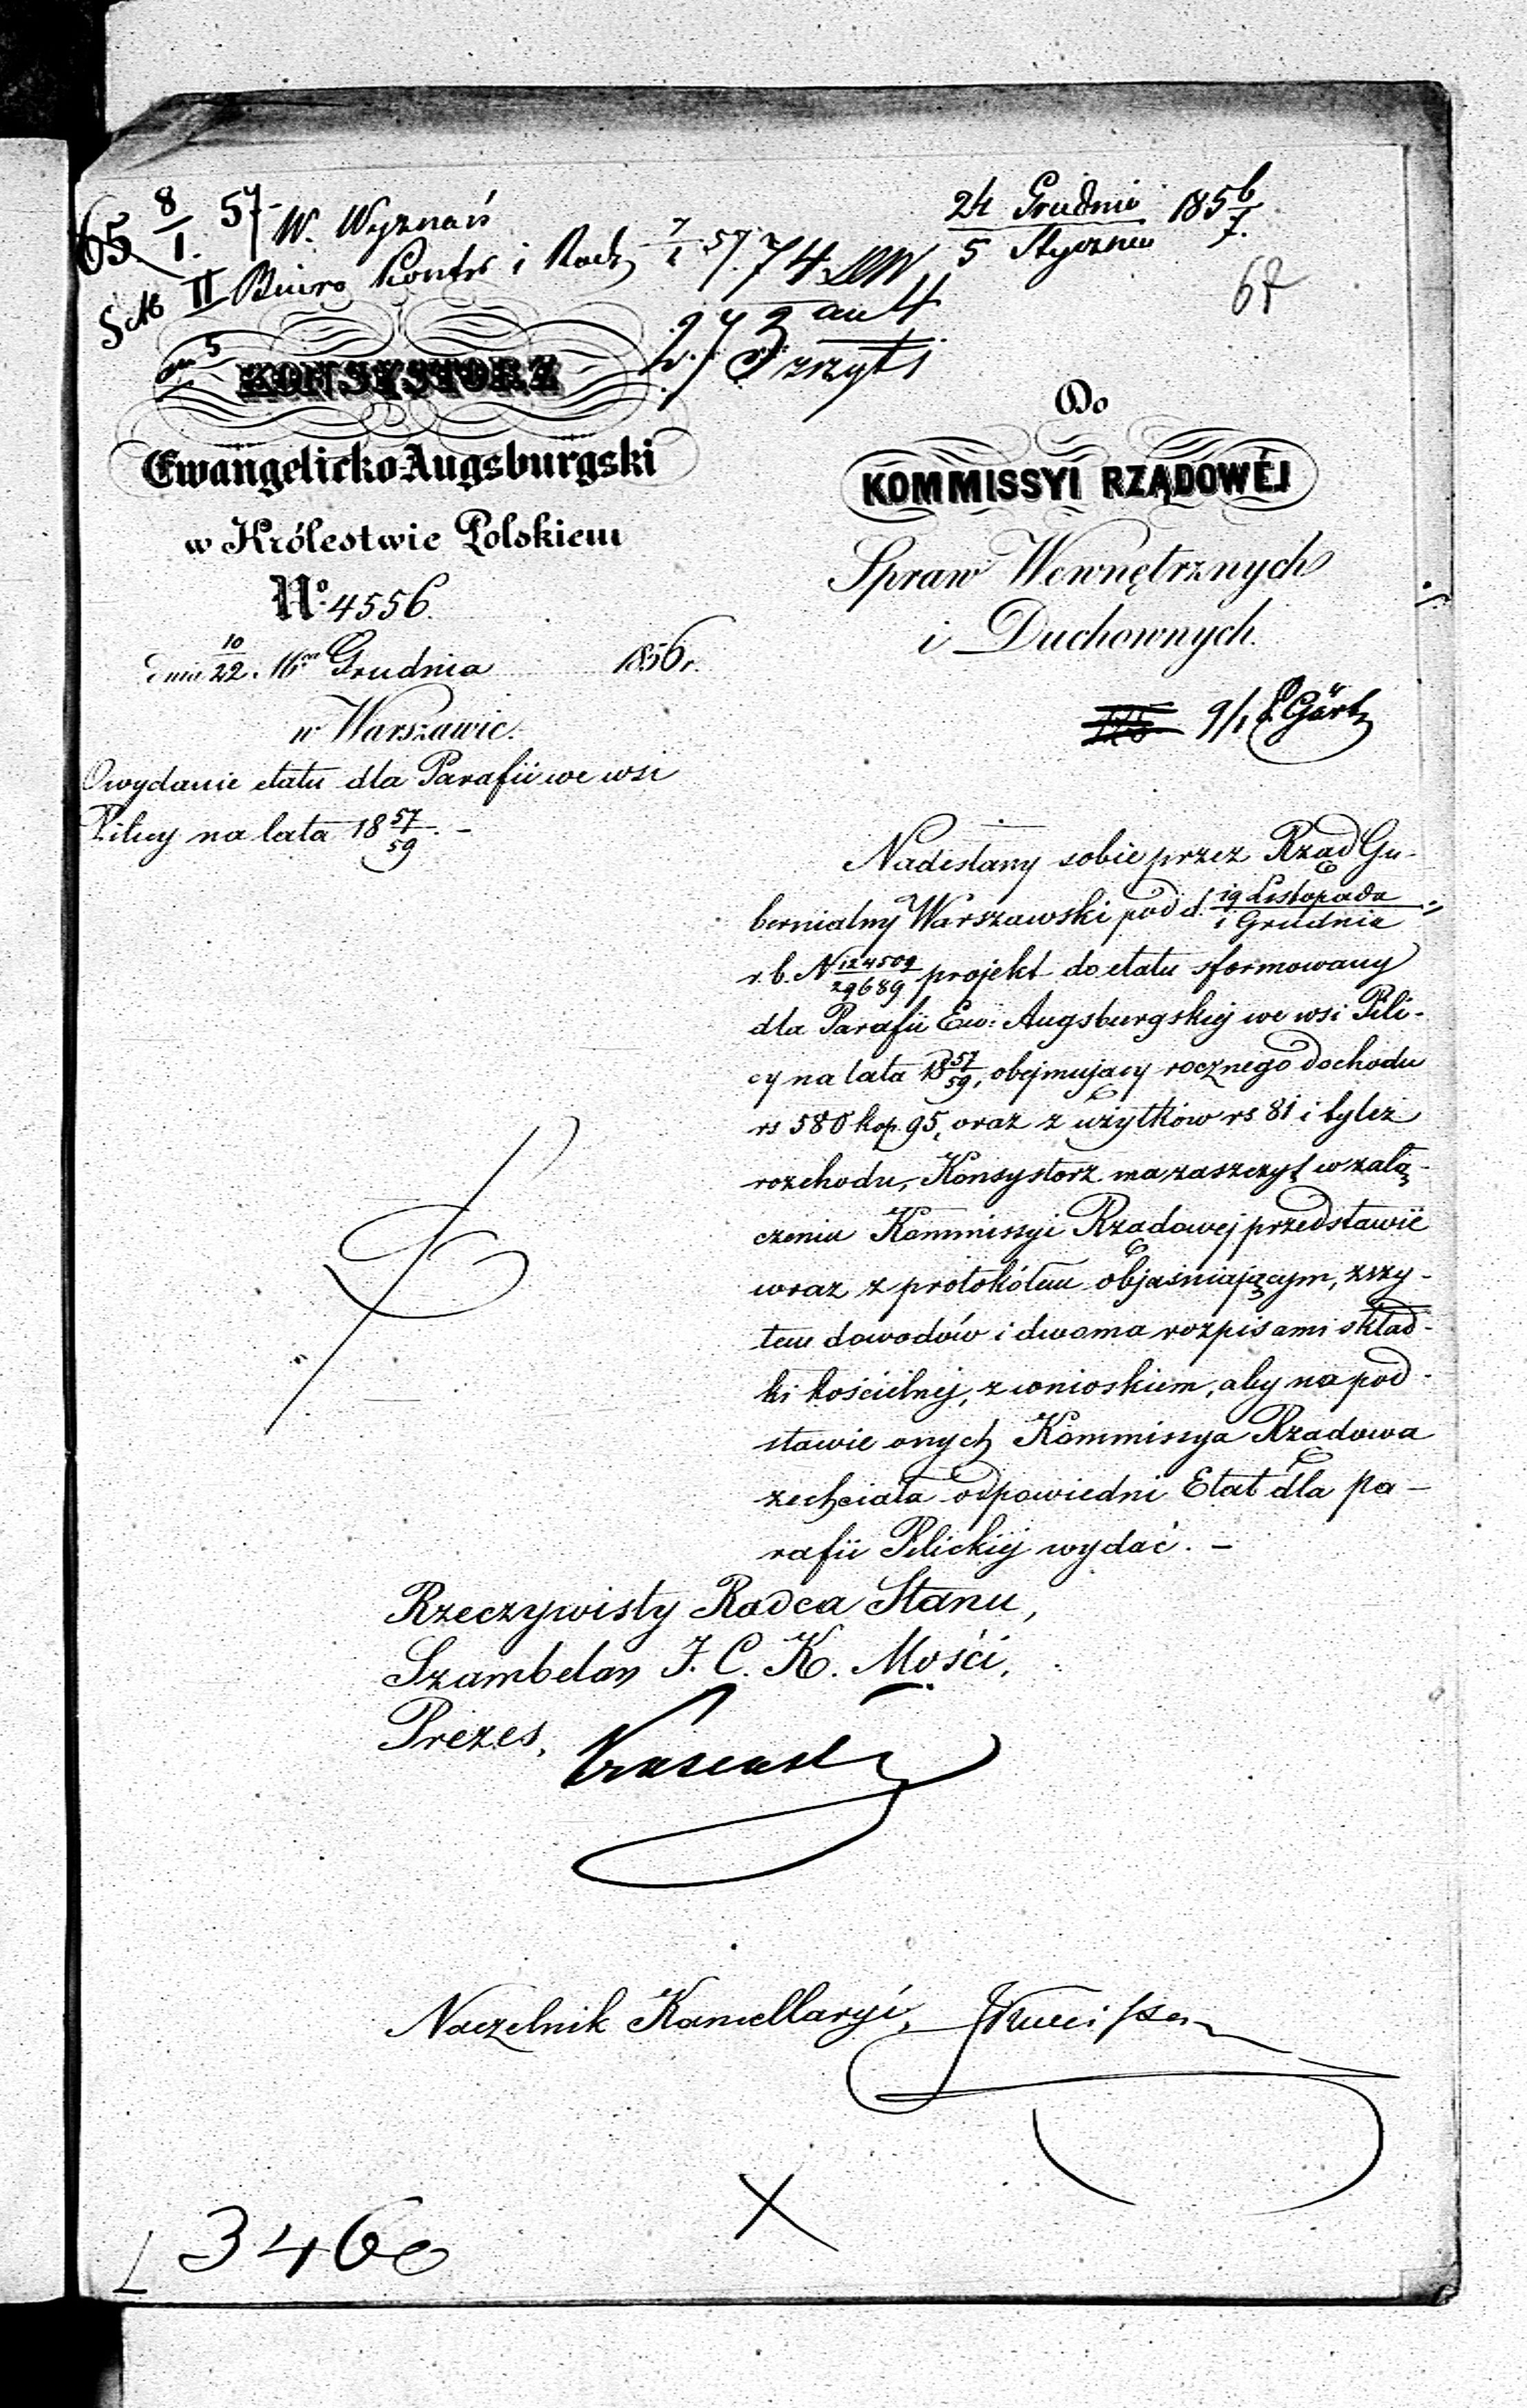 65 8/1. 57 W. Wyznań
Sek II Biuro Kontr i Rach 7/1 57.
24 Grudnia / 5 Stycznia 1856/7.
74
67
KONSYSTORZ
Ewangelicko-Augsburgski
w Królestwie Polskiem
No. 4556.
dnia 10/22. 16 Grudnia 1856 r.
w Warszawie.
O wydanie etatu dla Parafii we wsi
Pilicy na lata 18 57/59. –
Do
KOMMISSYI RZĄDOWÉJ
Spraw Wewnętrznych
i Duchownych.
9/1
Nadesłany sobie przez Rząd Gu-
bernialny Warszawski pod d. 19 Listopada / 1 Grudnia
r. b. N 124509/29689 projekt do etatu sformowany
dla Parafii Ew: Augsburgskiej we wsi Pili-
cy na lata 18 57/59, obejmujący rocznego dochodu
rs 580 kop. 95, oraz z użytków rs 81 i tyleż
rozchodu, Konsystorz ma zaszczyt w załą-
czeniu Kommissyi Rządowej przedstawić
wraz z protokółem objaśniającym, zszy-
tem dowodów i dwoma rozpisami skład-
ki kościelnej, z wnioskiem, aby na pod-
stawie onych Kommissya Rządowa
zechciała odpowiedni Etat dla pa-
rafii Pilickiej wydać. –
Rzeczywisty Radca Stanu,
Szambelan J. C. K. Mości,
Prezes,
Naczelnik Kancellaryi,
3460